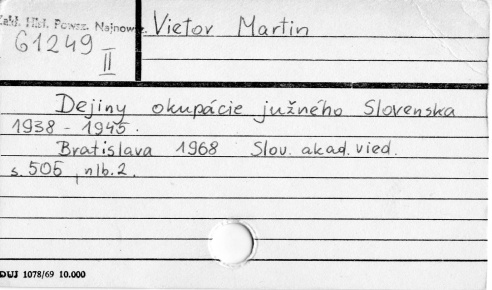 Zakł. Hist. Powsz. Najnow.
61249
II
Vietor Martin
Dejiny okupácie južného Slovenska
1938 - 1945.
Bratislava 1968 Slov. akad. vied.
s. 505, nlb. 2.
DUJ 1078/69 10.000